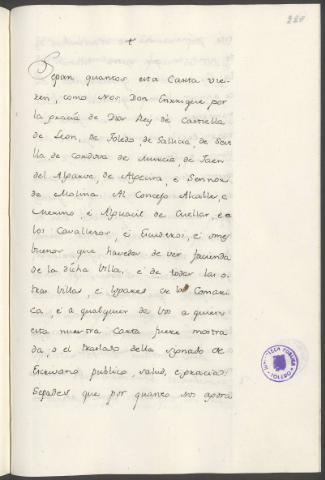 220
+
Sepan quantos esta Carta vie-
ren, como Nos Don Enrrique por
la gracia de Dios Rey de Castiella
de Leon, de Toledo, de Gallicia, de Sevi
lla de Cordova de Murcia, de Jaen
del Algarve, de Algecira, e Sennor
de Molina. Al Concejo Alcalles, e
Merino, e Alguacil de Cuellar, e a
los Cavalleros, e Escuderos, e omes
buenos que havedes de ver facienda
de la dicha Villa, e de todas las o-
tras Villas, e Lugares de la Comar
ca, e a qualquier de vos a quien
esta nuestra Carta fuere mostra
da, o el traslado della signado de
Escrivano publico, salud, e gracia:
Sepades, que por quanto nos agora